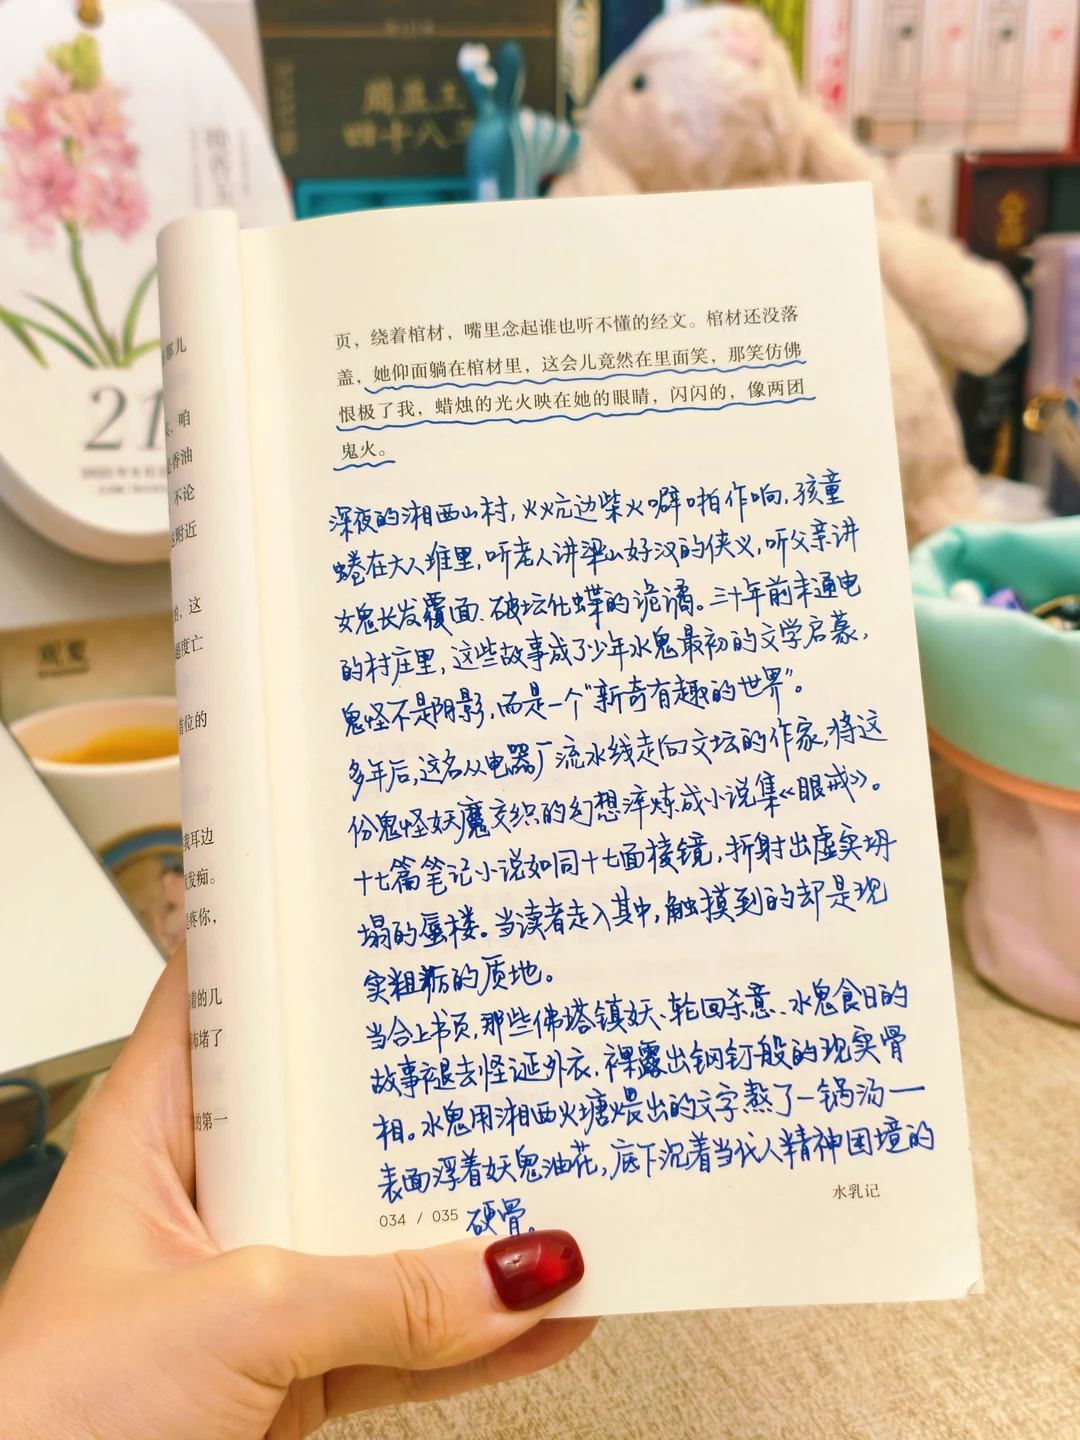 周盖王
四十八
21
那儿
咱
香油
不论
附近
这
超度亡
着位的
我耳边
发痴。
疼你,
着的几
堵了
的第一
页，绕着棺材，嘴里念起谁也听不懂的经文。棺材还没落
盖，她仰面躺在棺材里，这会儿竟然在里面笑，那笑仿佛
恨极了我，蜡烛的光火映在她的眼睛，闪闪的，像两团
鬼火。
深夜的湘西山村,火炕边柴火噼啪作响,孩童
蜷在大人堆里,听老人讲梁山好汉的侠义,听父亲讲
女鬼长发覆面、破坛化蝶的诡谲。三十年前未通电
的村庄里,这些故事成了少年水鬼最初的文学启蒙,
鬼怪不是阴影,而是一个“新奇有趣的世界”。
多年后,这名从电器厂流水线走向文坛的作家,将这
份鬼怪妖魔交织的幻想淬炼成小说集《眼戒》。
十七篇笔记小说如同十七面棱镜,折射出虚实坍
塌的蜃楼。当读者走入其中,触摸到的却是现
实粗粝的质地。
当合上书页,那些佛塔镇妖、轮回杀意、水鬼食日的
故事褪去怪诞外衣,裸露出钢钉般的现实骨
相。水鬼用湘西火塘煨出的文字熬了一锅汤一
表面浮着妖鬼油花,底下沉着当代人精神困境的
硬骨。
034 / 035
水乳记